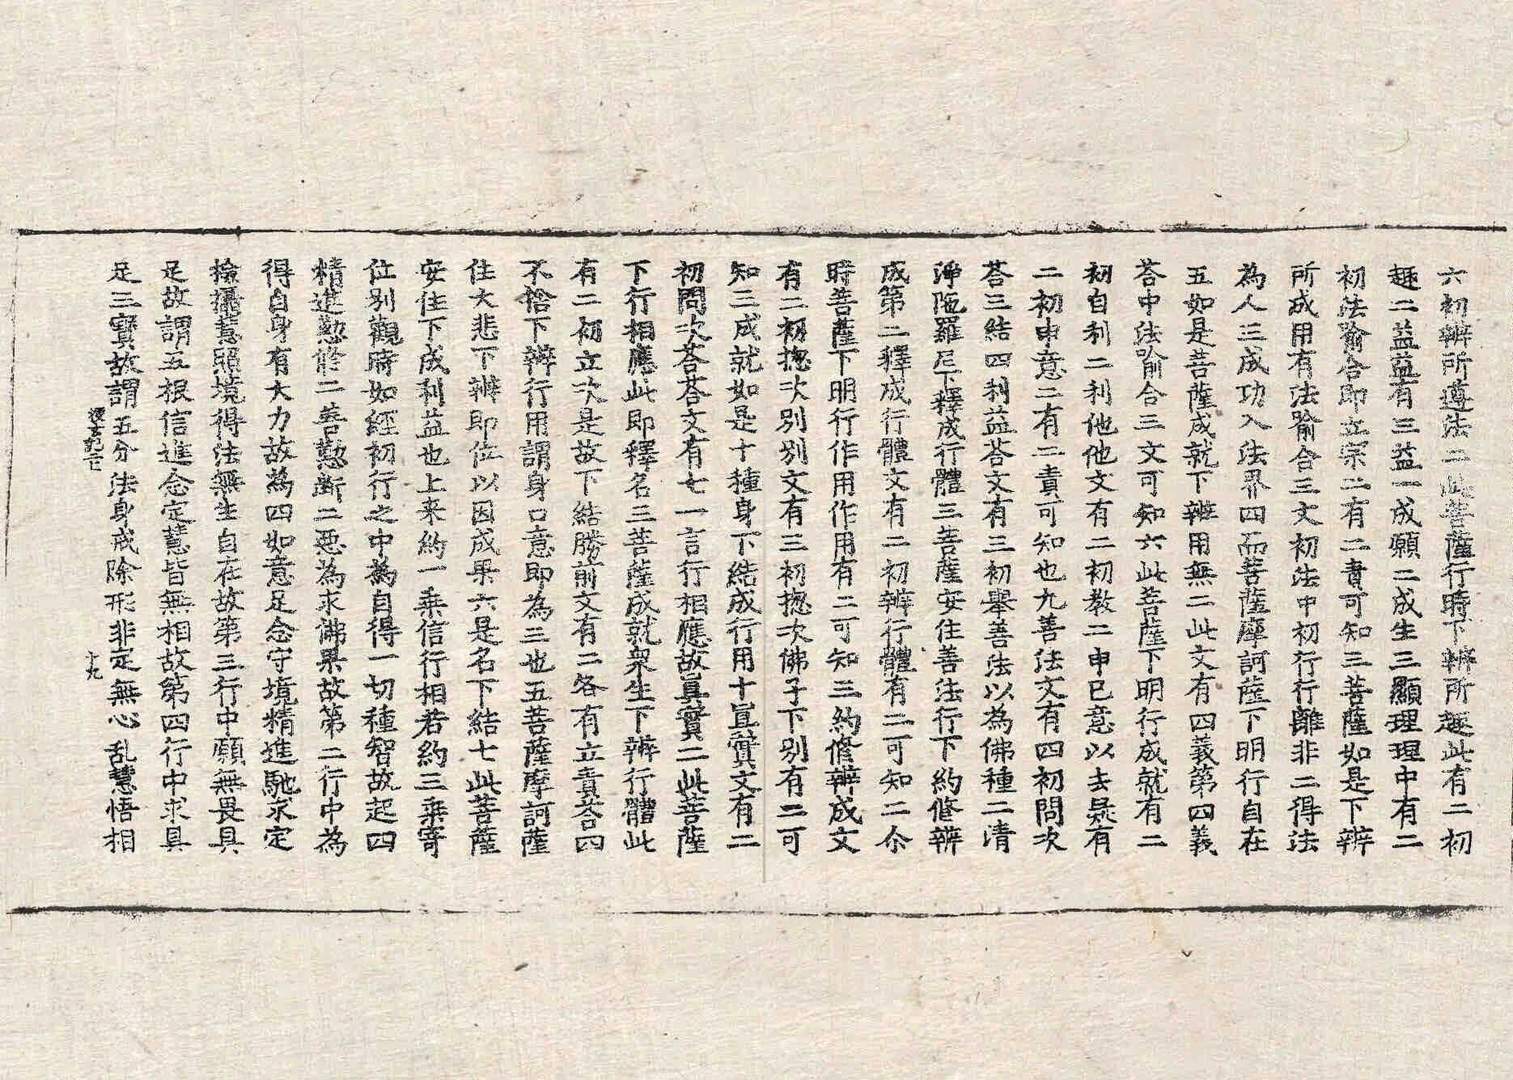 六初辨所遵法二此菩薩行時下辨所趣此有二初
趣二益益有三益一成願二成生三顯理理中有二
初法喻合即立宗二有二責可知三菩薩如是下辨
所成用有法喻合三文初法中初行行離非二得法
為人三成功入法界四而菩薩摩訶薩下明行自在
五如是菩薩成就下辨用無二此文有四義第四義
荅中法喻合三文可知六此菩薩下明行成就有二
初自利二利他他文有二初教二申已意以去疑有
二初申意二有二責可知也九善法文有四初問次
荅三結四利益荅文有三初舉善法以為佛種二清
淨陁羅尼下釋成行體三菩薩安住善法行下約修辨
成第二釋成行體文有二初辨行體有二可知二尒
時菩薩下明行作用作用有二可知三約修辨成文
有二初揔次別別文有三初揔次佛子下別有二可
知三成就如是十種身下結成行用十真實文有二
初問次荅荅文有七一言行相應故真實二此菩薩
下行相應此即釋名三菩薩成就衆生下辨行體此
有二初立次是故下結勝前文有二各有立責荅四
不捨下辨行用謂身口意即為三也五菩薩摩訶薩
住大悲下辨即位以因成果六是名下結七此菩薩
安住下成利益也上来約一乗信行相若約三乗寄
位别觀時如經初行之中為自得一切種智故起四
精進懃修二善懃断二悪為求佛果故第二行中為
得自身有大力故為四如意足念守境精進馳求定
撿攝慧照境得法無生自在故第三行中願無畏具
足故謂五根信進念定慧皆無相故第四行中求具
足三寳故謂五分法身戒除形非定無心乱慧悟相
十九